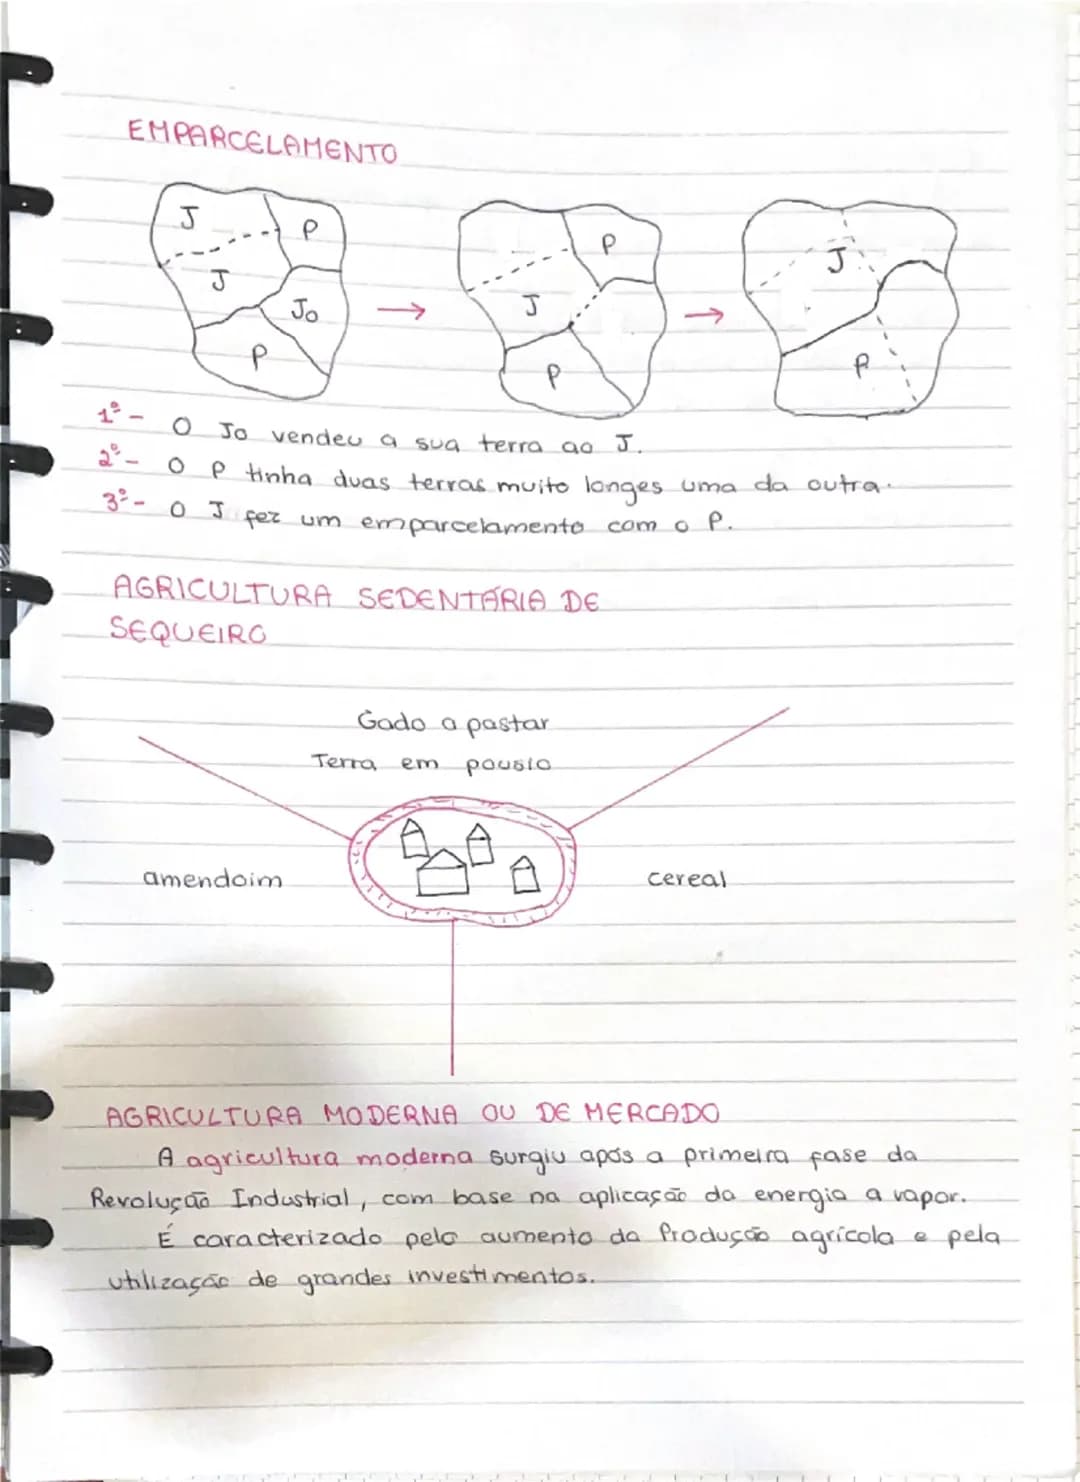 EMPARCELAMENTO
J P
J
Jo
P
P
J
P
J
P
1º - O Jo vendeu a sua terra ao J.
2º - O P tinha duas terras muito longes uma da outra.
3º - O J fez um emparcelamento com o P.
AGRICULTURA SEDENTÁRIA DE
SEQUEIRO
Gado a pastar
Terra em pousio
amendoim cereal
AGRICULTURA MODERNA OU DE MERCADO
A agricultura moderna surgiu após a primeira fase da
Revolução Industrial, com base na aplicação da energia a vapor.
É caracterizado pelo aumento da Produção agrícola e pela
utilização de grandes investimentos.